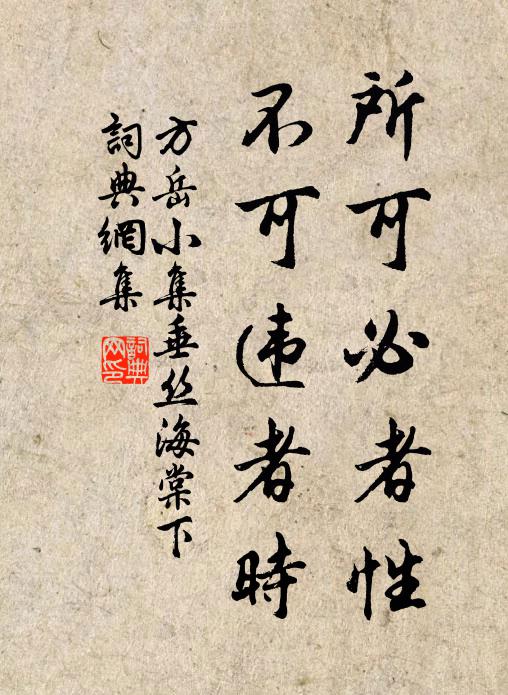 所可必者性
不可违者時
方岳小集垂丝海棠下
詞典網集
詞典
网印